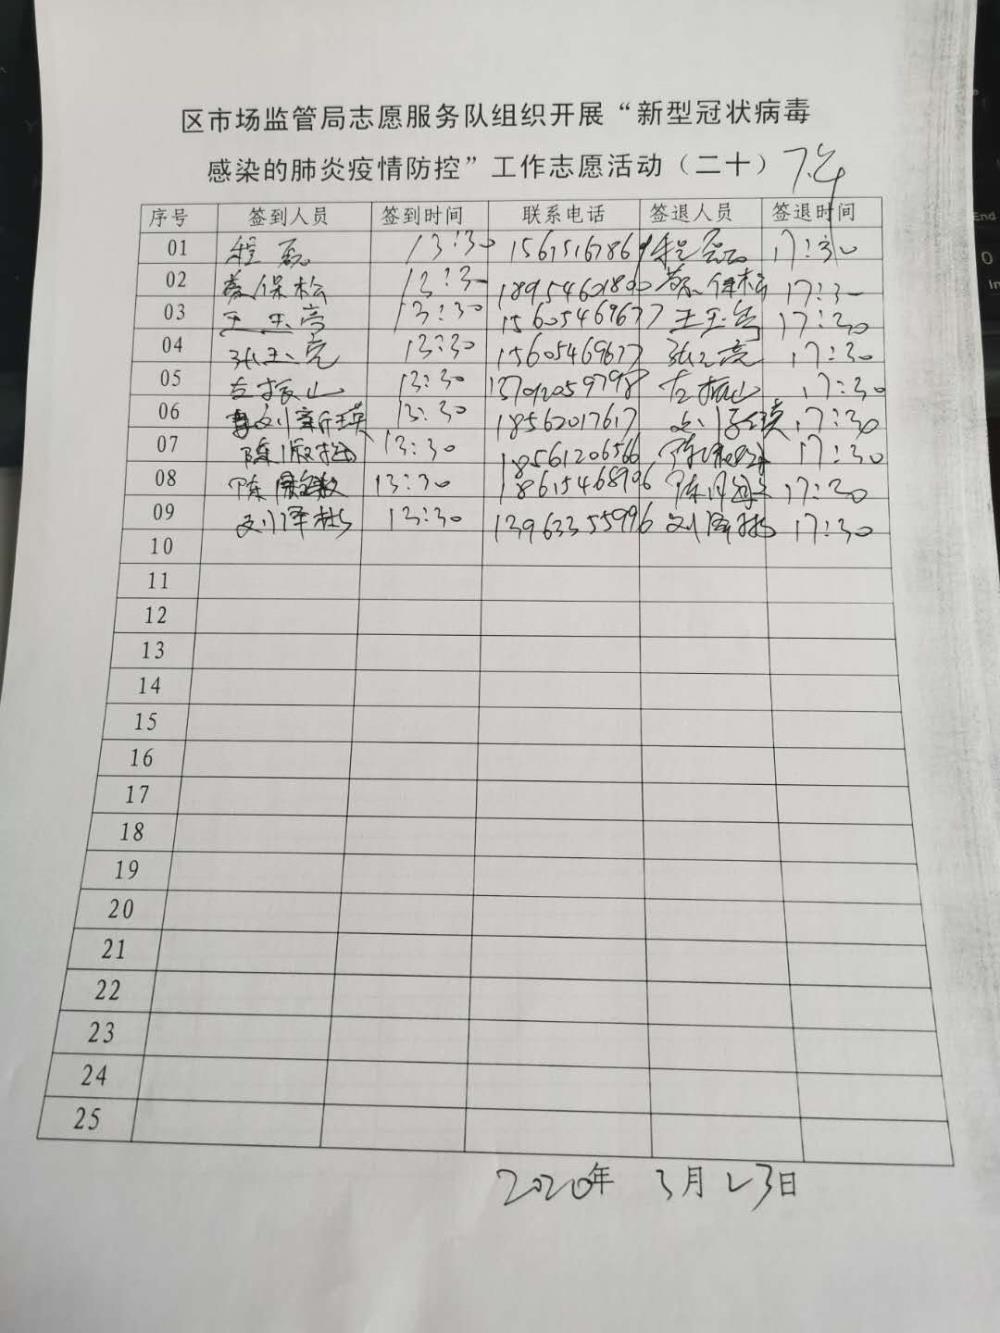 区市场监管局志愿服务队组织开展“新型冠状病毒
感染的肺炎疫情防控”工作志愿活动（二十）下午
序号 签到人员 签到时间 联系电话 签退人员 签退时间
01 程磊 13:30 程磊 17:30
02 保松 13:30 保松 17:30
03 王玉亮 13:30 15605469677 王玉亮 17:30
04 张玉亮 13:30 15605469677 张玉亮 17:30
05 左振山 13:30 左振山 17:30
06 13:30 18562017617 17:30
07 陈 13:30 18561206566 陈 17:30
08 陈 13:30 18615468996 陈 17:30
09 刘泽 13:30 13963355996 刘泽 17:30
10
11
12
13
14
15
16
17
18
19
20
21
22
23
24
25
2020年 3月23日
End
0
In